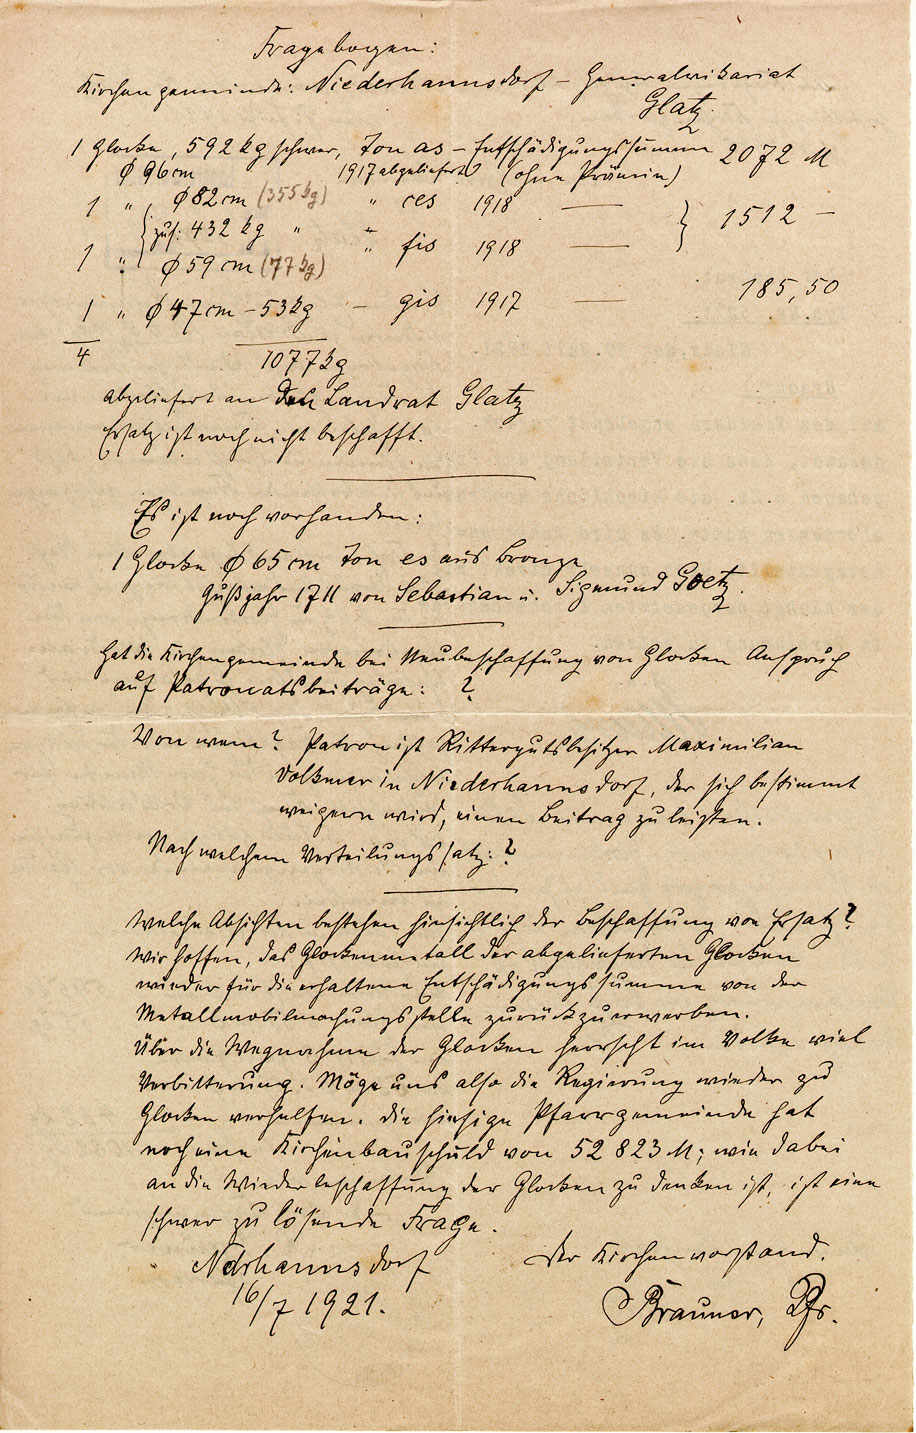 Fragebogen:
Kirchengemeinde: Niederhannsdorf – Generalvikariat
Glatz.
1 Glocke, 592 kg schwer, Ton as – Entschädigungssumme 2072 M
Φ 96 cm 1917 abgeliefert (ohne Prämie)
1 " Φ 82 cm (355 kg) " ces 1918 —
zus: 432 kg " 1512 –
1 " Φ 59 cm (77 kg) " fis 1918 —
1 " Φ 47 cm – 53 kg – gis 1917 — 185,50
4 1077 kg
abgeliefert an den Landrat Glatz
Ersatz ist noch nicht beschafft.
Es ist noch vorhanden:
1 Glocke Φ 65 cm Ton es aus Bronze
Gußjahr 1711 von Sebastian u. Sigmund Goetz.
Hat die Kirchengemeinde bei Neubeschaffung von Glocken Anspruch
auf Patronatsbeiträge: ?
Von wem? Patron ist Rittergutsbesitzer Maximilian
Volkmer in Niederhannsdorf, der sich bestimmt
weigern wird, einen Beitrag zu leisten.
Nach welchem Verteilungssatz: ?
Welche Absichten bestehen hinsichtlich der Beschaffung von Ersatz?
Wir hoffen, das Glockenmetall der abgelieferten Glocken
wieder für die erhaltene Entschädigungssumme von der
Metallmobilmachungsstelle zurückzuerwerben.
Über die Wegnahme der Glocken herrscht im Volke viel
Verbitterung. Möge uns also die Regierung wieder zu
Glocken verhelfen. Die hiesige Pfarrgemeinde hat
noch eine Kirchenbauschuld von 52 823 M; wie dabei
an die Wiederbeschaffung der Glocken zu denken ist, ist eine
schwer zu lösende Frage.
Ndrhannsdorf Der Kirchenvorstand.
16/7 1921. Brauner, Pfr.